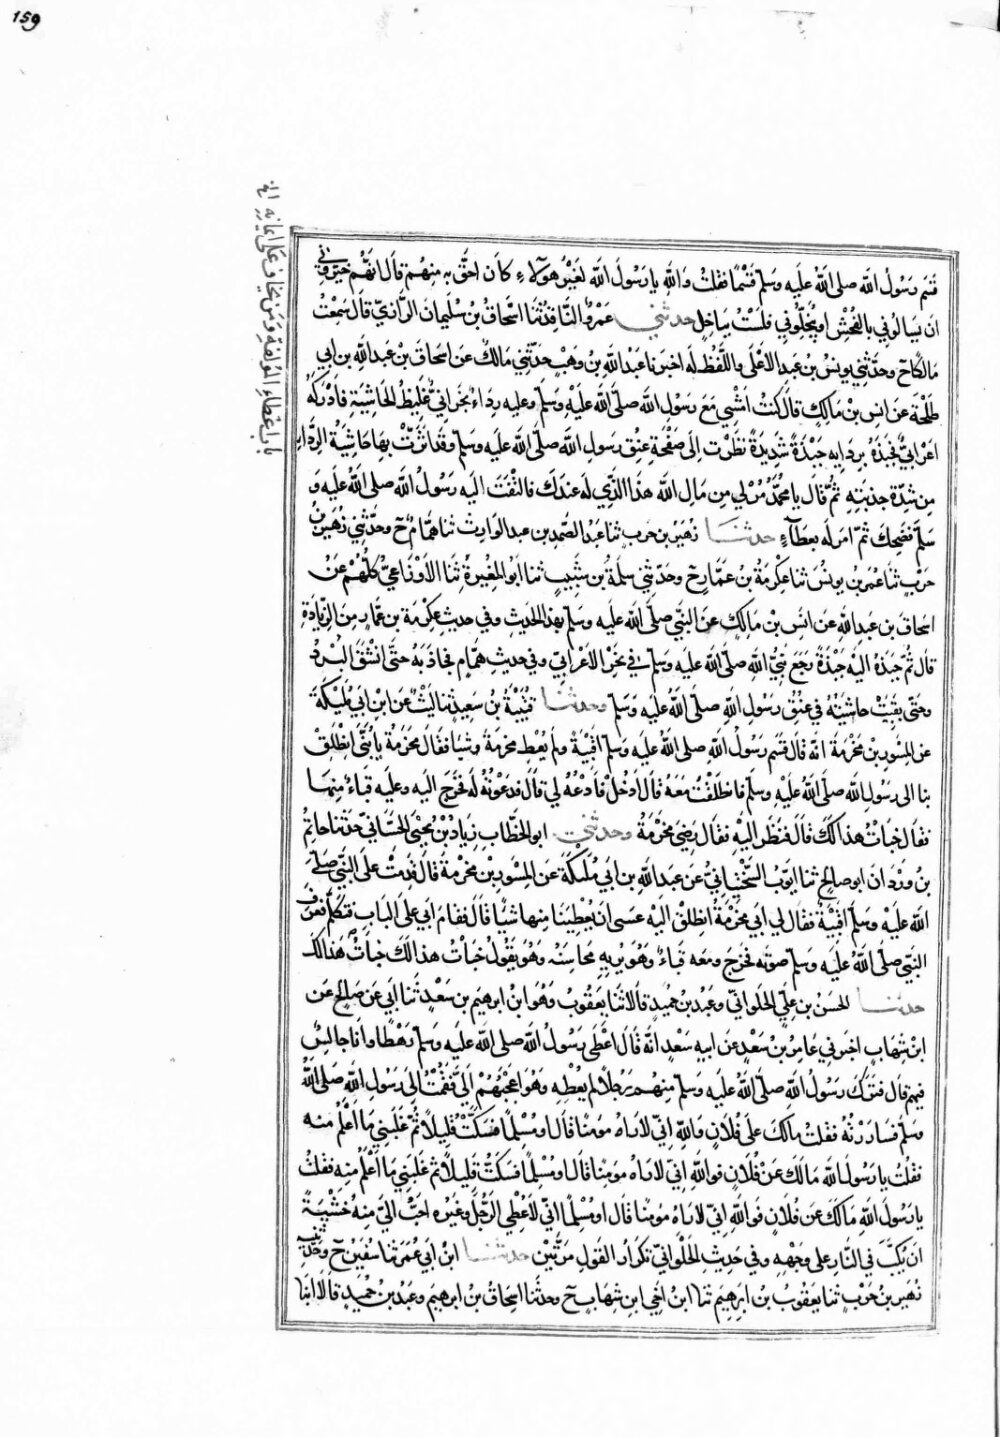 159
باب اعطاء المؤلفة ومن يخاف على ايمانه الخ
قسم رسول الله صلى الله عليه وسلم قسما فقلت والله يا رسول الله لغير هولاء كان احق به منهم قال انهم خيروني
ان يسالوني بالفحش او يبخلوني فلست بباخل حدثني عمرو الناقد ثنا اسحاق بن سليمان الرازي قال سمعت
مالكا ح وحدثني يونس بن عبد الاعلى واللفظ له اخبرنا عبد الله بن وهب حدثني مالك عن اسحاق بن عبد الله بن ابي
طلحة عن انس بن مالك قال كنت امشي مع رسول الله صلى الله عليه وسلم وعليه رداء نجراني غليظ الحاشية فادركه
اعرابي فجبذه بردايه جبذة شديدة نظرت الى صفحة عنق رسول الله صلى الله عليه وسلم وقد اثرت بها حاشية الرداء
من شدة جذبته ثم قال يا محمد مر لي من مال الله هذا الذي له عندك فالتفت اليه رسول الله صلى الله عليه و
سلم فضحك ثم امر له بعطاء حدثنا زهير بن حرب ثنا عبد الصمد بن عبد الوارث ثنا همام ح وحدثني زهير بن
حرب ثنا عمر بن يونس ثنا عكرمة بن عمار ح وحدثني سلمة بن شبيب ثنا ابو المغيرة ثنا الاوزاعي كلهم عن
اسحاق بن عبد الله عن انس بن مالك عن النبي صلى الله عليه وسلم بهذا الحديث وفي حديث عكرمة بن عمار من الزيادة
قال ثم جبذه اليه جبذة رجع نبي الله صلى الله عليه وسلم في نحر الاعرابي وفي حديث همام فجاذبه حتى انشق البرد
وحتى بقيت حاشيته في عنق رسول الله صلى الله عليه وسلم وحدثنا قتيبة بن سعيد ثنا ليث عن ابن ابي مليكة
عن المسور بن مخرمة انه قال قسم رسول الله صلى الله عليه وسلم اقبية ولم يعط مخرمة شيا فقال مخرمة يابني انطلق
بنا الى رسول الله صلى الله عليه وسلم فانطلقت معه قال ادخل فادعه لي قال فدعوته له فخرج اليه وعليه قباء منها
فقال خبات هذا لك قال فنظر اليه فقال رضي مخرمة وحدثني ابو الخطاب زياد بن يحيى الحساني حدثنا حاتم
بن وردان ابو صالح ثنا ايوب السختياني عن عبد الله بن ابي مليكة عن المسور بن مخرمة قال قدمت على النبي صلى
الله عليه وسلم اقبية فقال لي ابي مخرمة انطلق اليه عسى ان يعطينا منها شيا قال فقام ابي على الباب فتكلم فعرف
النبي صلى الله عليه وسلم صوته فخرج ومعه قباء وهو يريه محاسنه وهو يقول خبات هذا لك خبات هذا لك
حدثنا الحسن بن علي الحلواني وعبد بن حميد قالا ثنا يعقوب وهو ابن ابرهيم بن سعد ثنا ابي عن صالح عن
ابن شهاب اخبرني عامر بن سعد عن ابيه سعد انه قال اعطى رسول الله صلى الله عليه وسلم رهطا وانا جالس
فيهم قال فترك رسول الله صلى الله عليه وسلم منهم رجلا لم يعطه وهو اعجبهم الي فقمت الى رسول الله صلى الله
وسلم فساررته فقلت مالك على فلان والله اني لاراه مومنا قال او مسلما فسكت قليلا ثم غلبني ما اعلم منه
فقلت يا رسول الله مالك عن فلان فوالله اني لاراه مومنا قال او مسلما فسكت قليلا ثم غلبني ما اعلم منه فقلت
يا رسول الله مالك عن فلان فوالله اني لاراه مومنا قال او مسلما اني لاعطي الرجل وغيره احب الي منه خشية
ان يكب في النار على وجهه وفي حديث الحلواني تكرار القول مرتين حدثنا ابن ابي عمر ثنا سفين ح وحدثنيه
زهير بن حرب ثنا يعقوب بن ابرهيم ثنا ابن اخي ابن شهاب ح وحدثنا اسحاق بن ابرهيم وعبد بن حميد قالا انبا